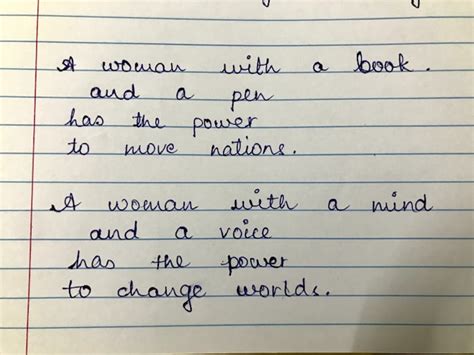 A woman with a book.
and a pen
has the power
to move nations.
A woman with a mind
and a voice
has the power
to change worlds.